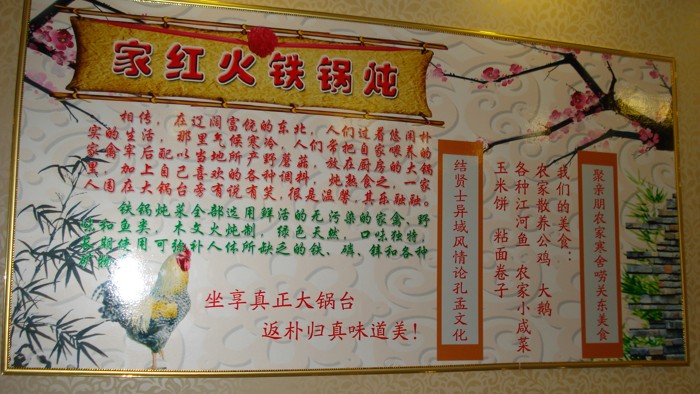 家红火铁锅炖
相传，在辽阔富饶的东北，人们过着悠闲朴
实的生活，那里气候寒冷，人们常把自家喂养的
家禽宰后配以当地所产野蘑菇，放在厨房的大锅
里，加上自己喜欢的各种调料，炖熟食之，一家
人围在大锅台旁有说有笑，很是温馨，其乐融融。
铁锅炖菜全部选用鲜活的无污染的家禽、野
和鱼类，木文火炖制，绿色天然，口味独特，
使用可补人体所缺乏的铁、磷、锌和各种
坐享真正大锅台
返朴归真味道美！
聚亲朋农家寒舍唠关东美食
我们的美食：
农家散养公鸡 大鹅
各种江河鱼 农家小咸菜
玉米饼 粘面卷子
结贤士异域风情论孔孟文化